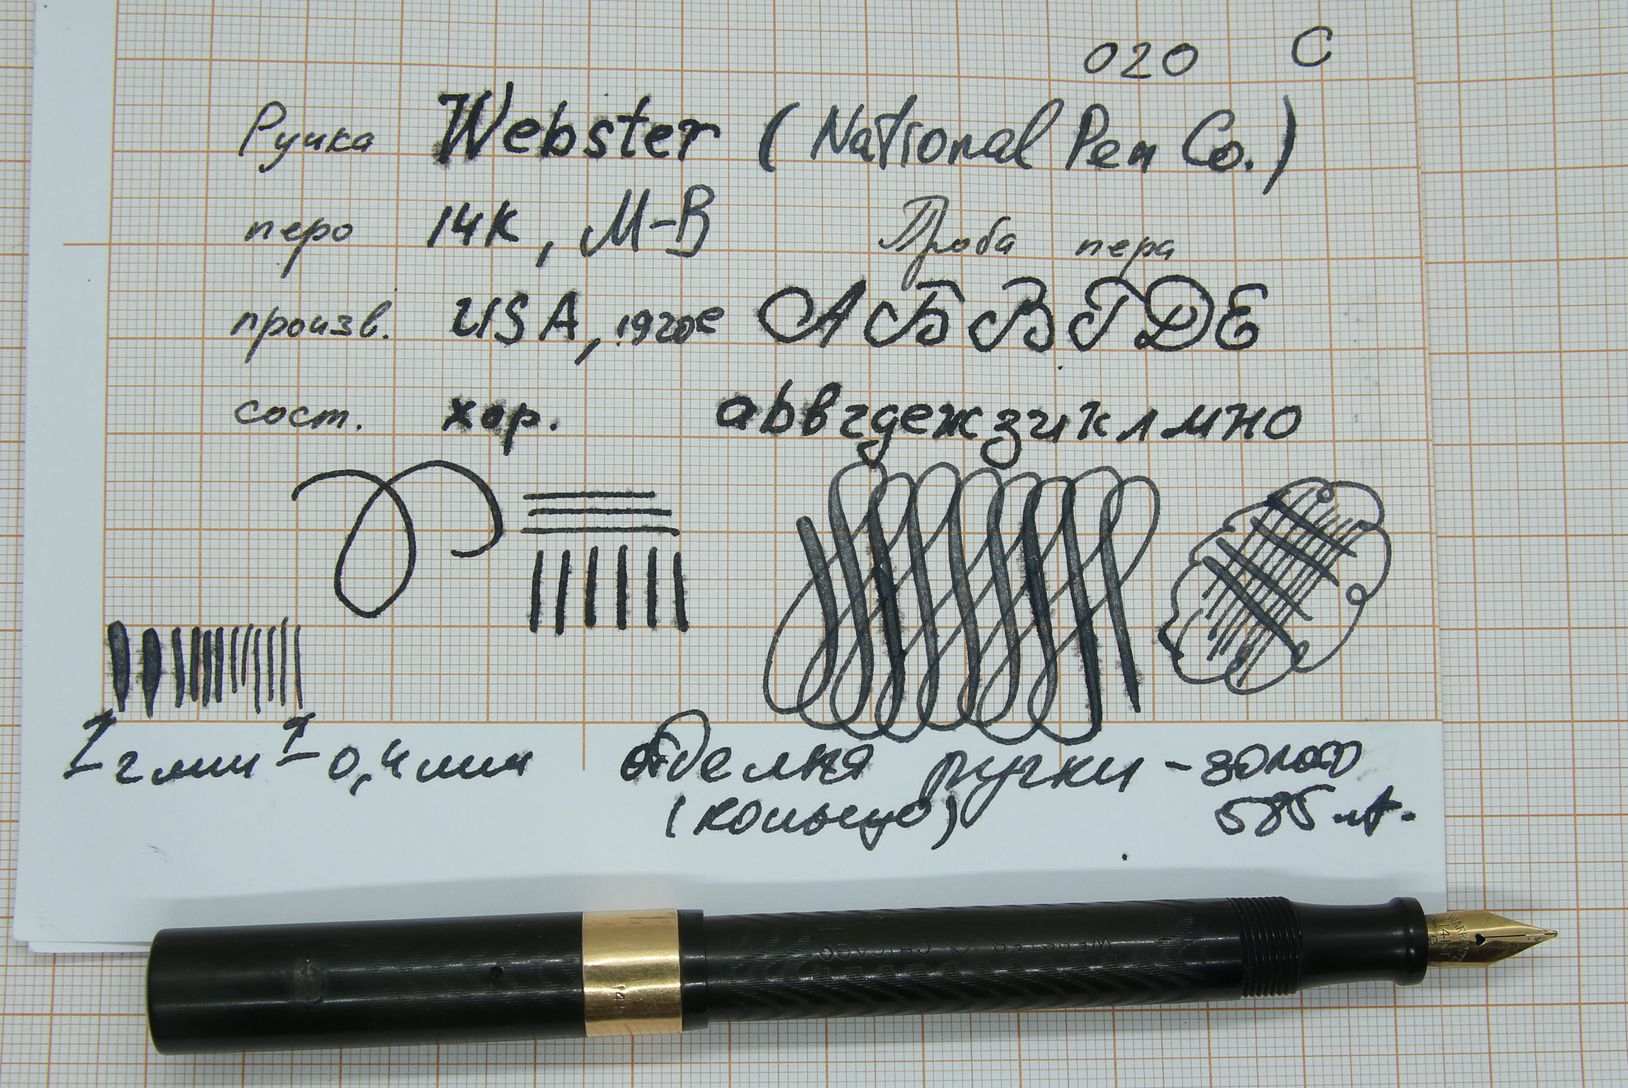 020 С
Ручка Webster (National Pen Co.)
перо 14K, M-B
Проба пера
произв. USA, 1920е
АБВГДЕ
сост. хор.
абвгдежзиклмно
2 мм 0,4 мм
отделка ручки - золото
(кольцо) 585
14K